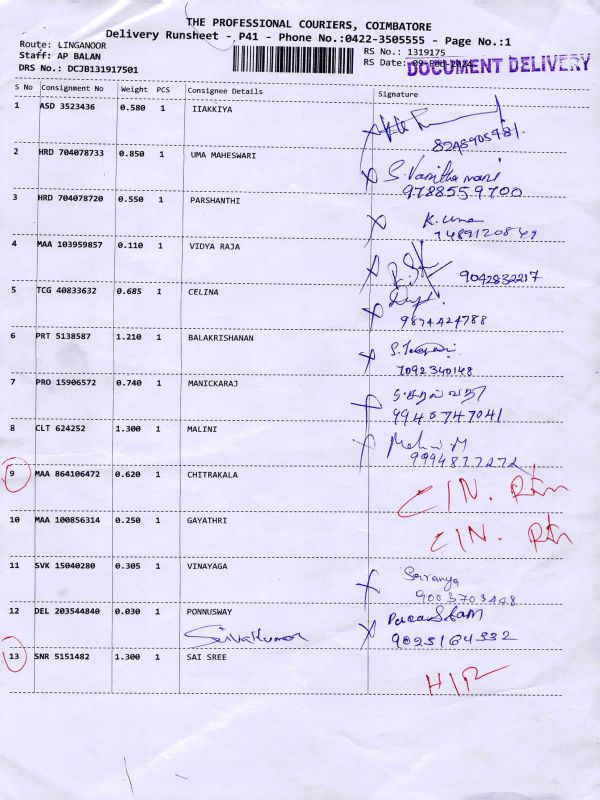 THE PROFESSIONAL COURIERS, COIMBATORE
Delivery Runsheet - P41 - Phone No.:0422-3505555 - Page No.:1
Route: LINGANOOR
RS No.: 1319175
Staff: AP BALAN
RS Date: 09-Feb-2024
DOCUMENT DELIVERY
DRS No.: DCJB131917501
S No Consignment No Weight PCS Consignee Details Signature
1 ASD 3523436 0.580 1 IIAKKIYA
2 HRD 704078733 0.850 1 UMA MAHESWARI S. Vanitha mani
9788559700
3 HRD 704078720 0.550 1 PARSHANTHI K. Uma
7489120849
4 MAA 103959857 0.110 1 VIDYA RAJA 9042832217
5 TCG 40833632 0.685 1 CELINA
9894424788
6 PRT 5138587 1.210 1 BALAKRISHANAN
7092340148
7 PRO 15906572 0.740 1 MANICKARAJ
9940747041
8 CLT 624252 1.300 1 MALINI Malini M
9994877272
9 MAA 864106472 0.620 1 CHITRAKALA CIN. Rtn
10 MAA 100856314 0.250 1 GAYATHRI CIN. Rtn
11 SVK 15040280 0.305 1 VINAYAGA Saranya
9003703448
12 DEL 203544840 0.030 1 PONNUSWAY
Sivakumar 9025164332
13 SNR 5151482 1.300 1 SAI SREE